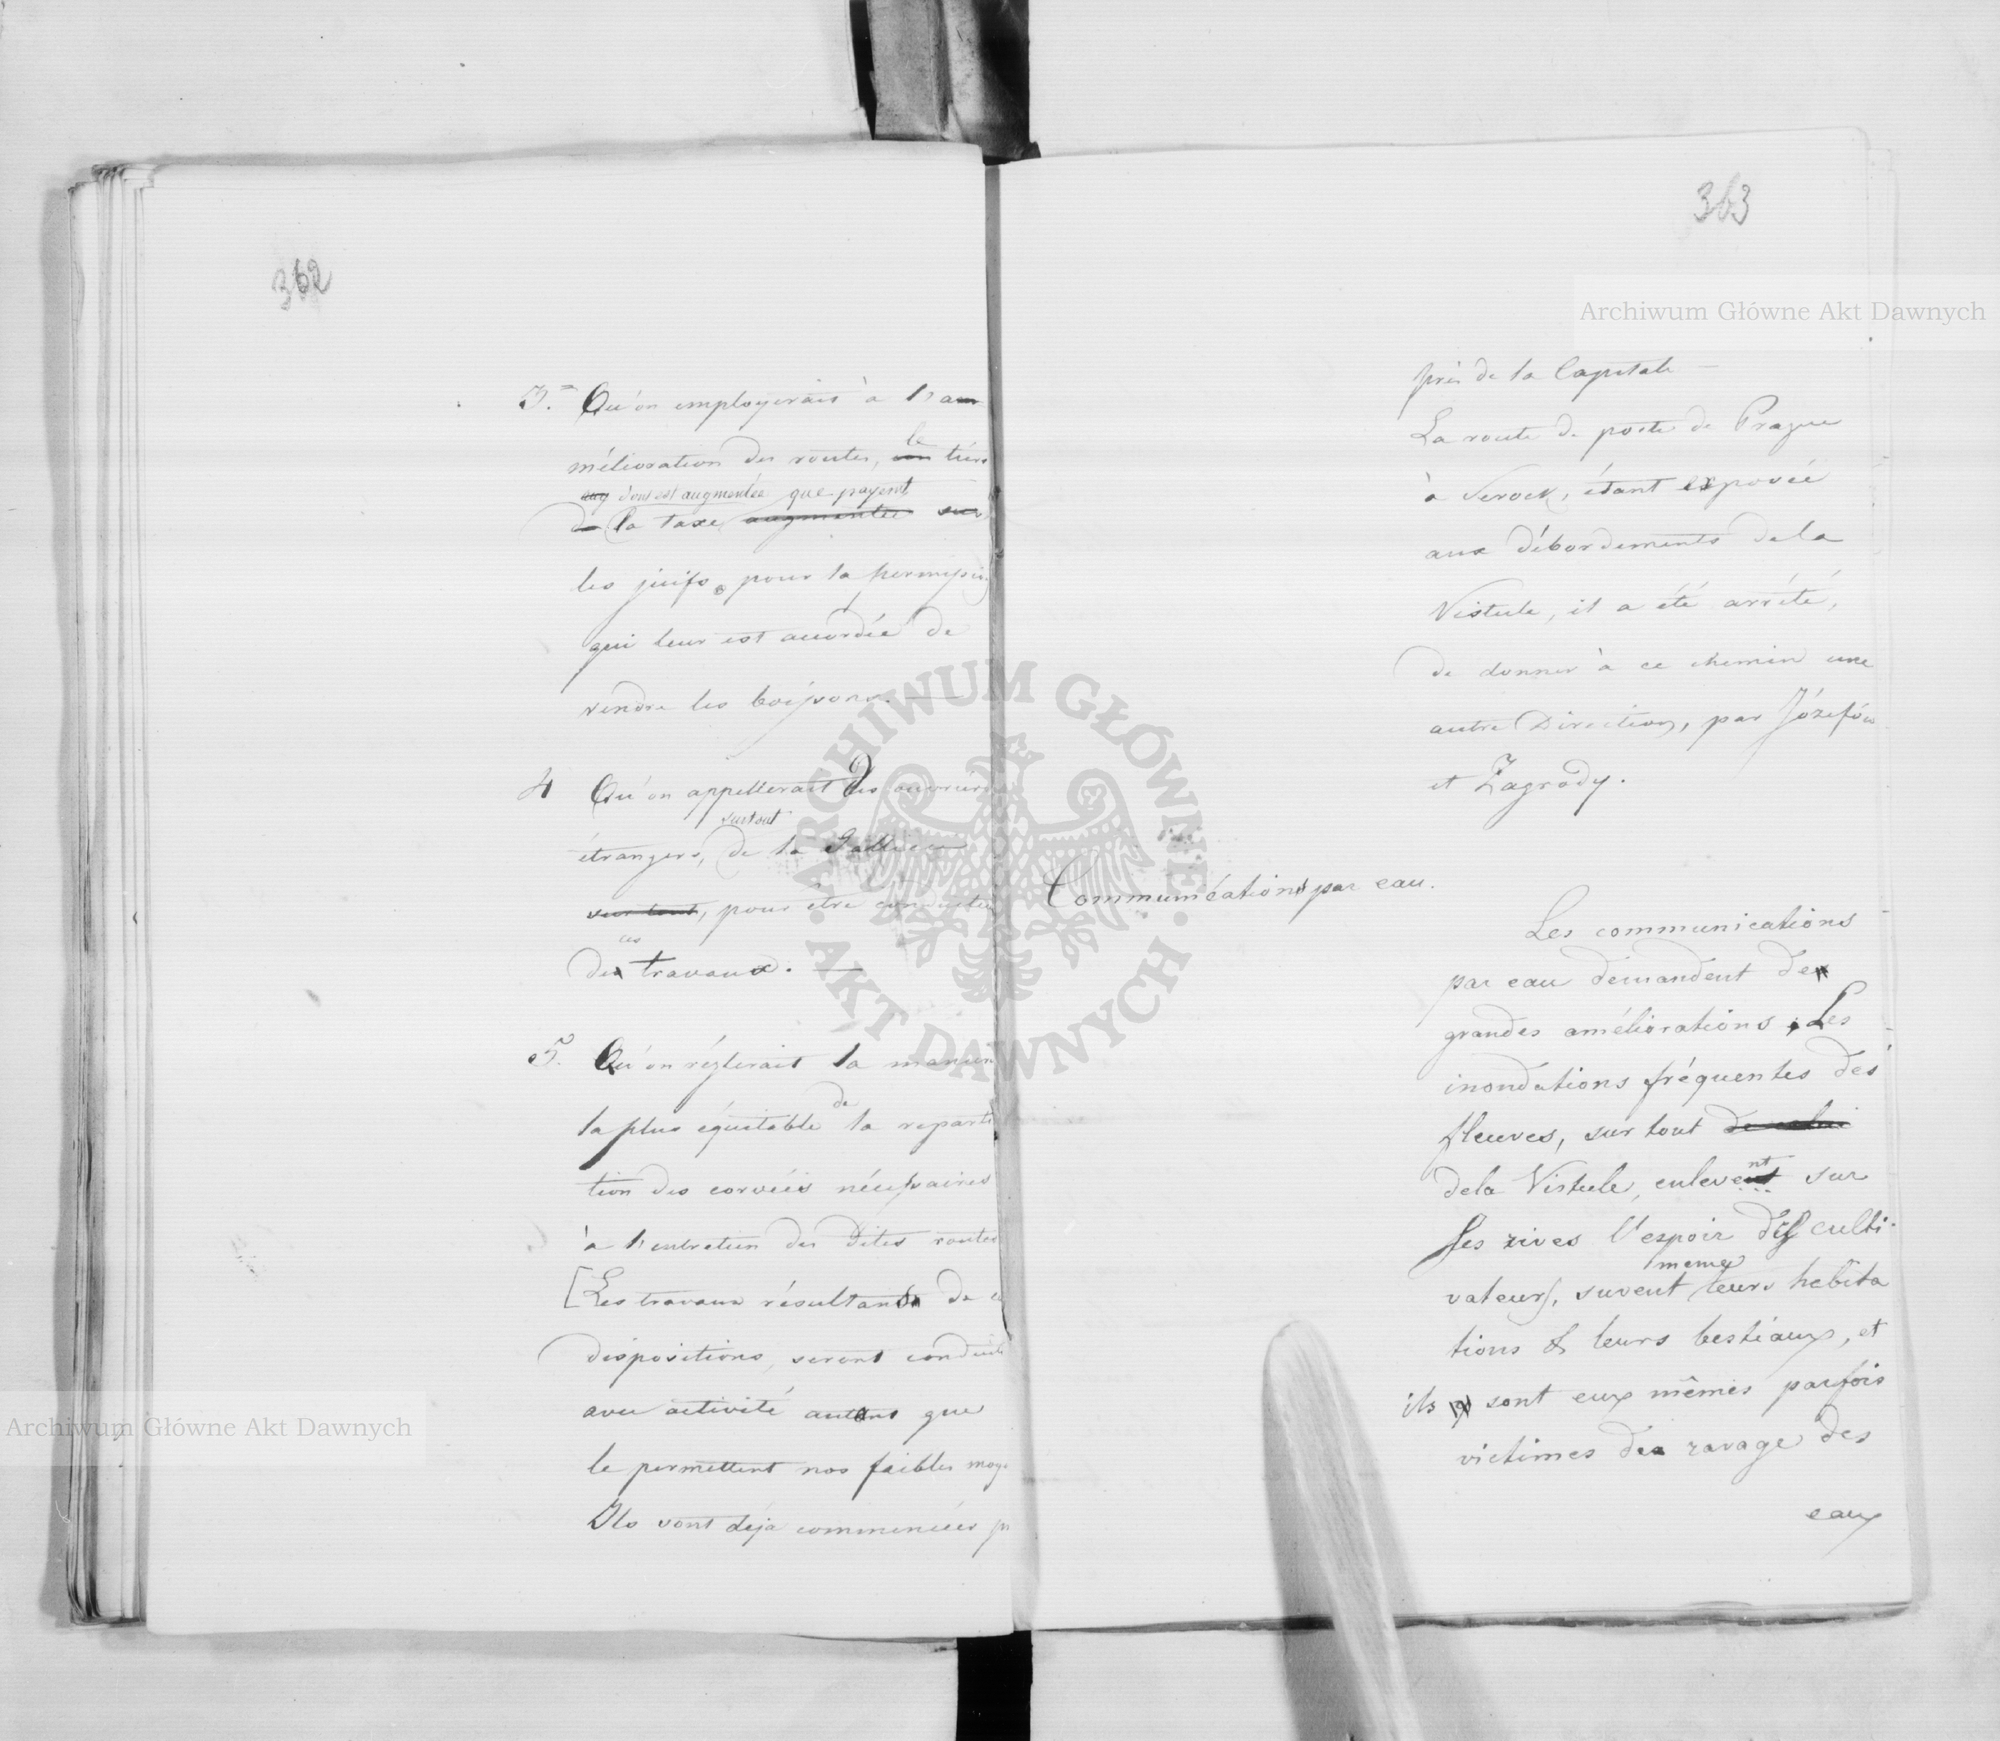 362
3.° Qu'on employerait à l'a
mélioration des routes, le tiers
dont est augmentée que payent
de la taxe augmentée sur
les juifs, pour la permission
qui leur est accordée de
vendre les boissons. —
4 Qu'on appellerait des ouvriers
surtout
étrangers, de la Gallicie
sur tout, pour être
ces
des travaux. —
5.° Qu'on réglerait la manière
de
la plus équitable la reparti
tion des corvées nécessaires
à l'entretien des dites routes
[Les travaux résultants de
dispositions, seront conduits
avec activité autant que
le permettent nos faibles moy
Ils sont déja commencées
363
près de la Capitale —
La route de poste de Prague
à Serock, étant exposée
aux débordements de la
Vistule, il a été arrêté,
de donner à ce chemin une
autre Direction, par Józefów
et Zagrody.
Communications par eau.
Les communications
par eau demandent de
grandes améliorations. Les
inondations fréquentes des
fleuves, sur tout
dela Vistule, enlevent sur
nt
ses rives l'espoir des culti-
meme
vateurs, suvent leurs habita
tions & leurs bestiaux, et
ils sont eux mêmes parfois
victimes de ravage des
eaux
Archiwum Główne Akt Dawnych
Archiwum Główne Akt Dawnych
ARCHIWUM GŁÓWNE AKT DAWNYCH